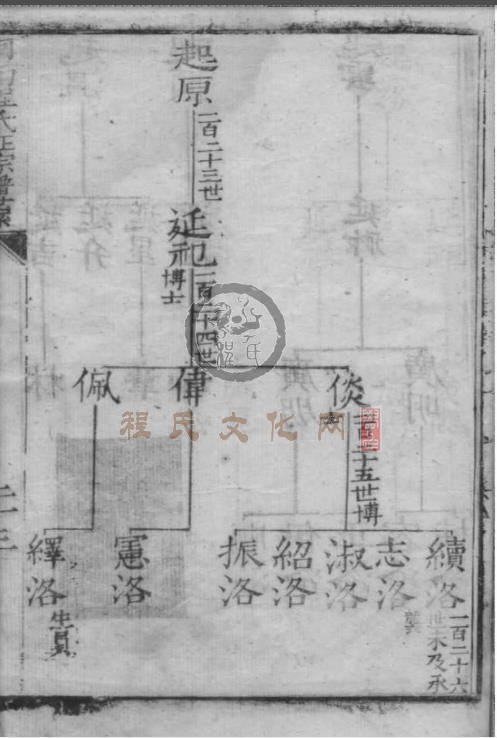 起原
一百二十三世
延祀
博士
一百二十四世
倓
一百二十五世博
偉
佩
續洛
一百二十六
世未及承
志洛
淑洛
紹洛
振洛
憲洛
繹洛
生員
程氏文化网
二十三